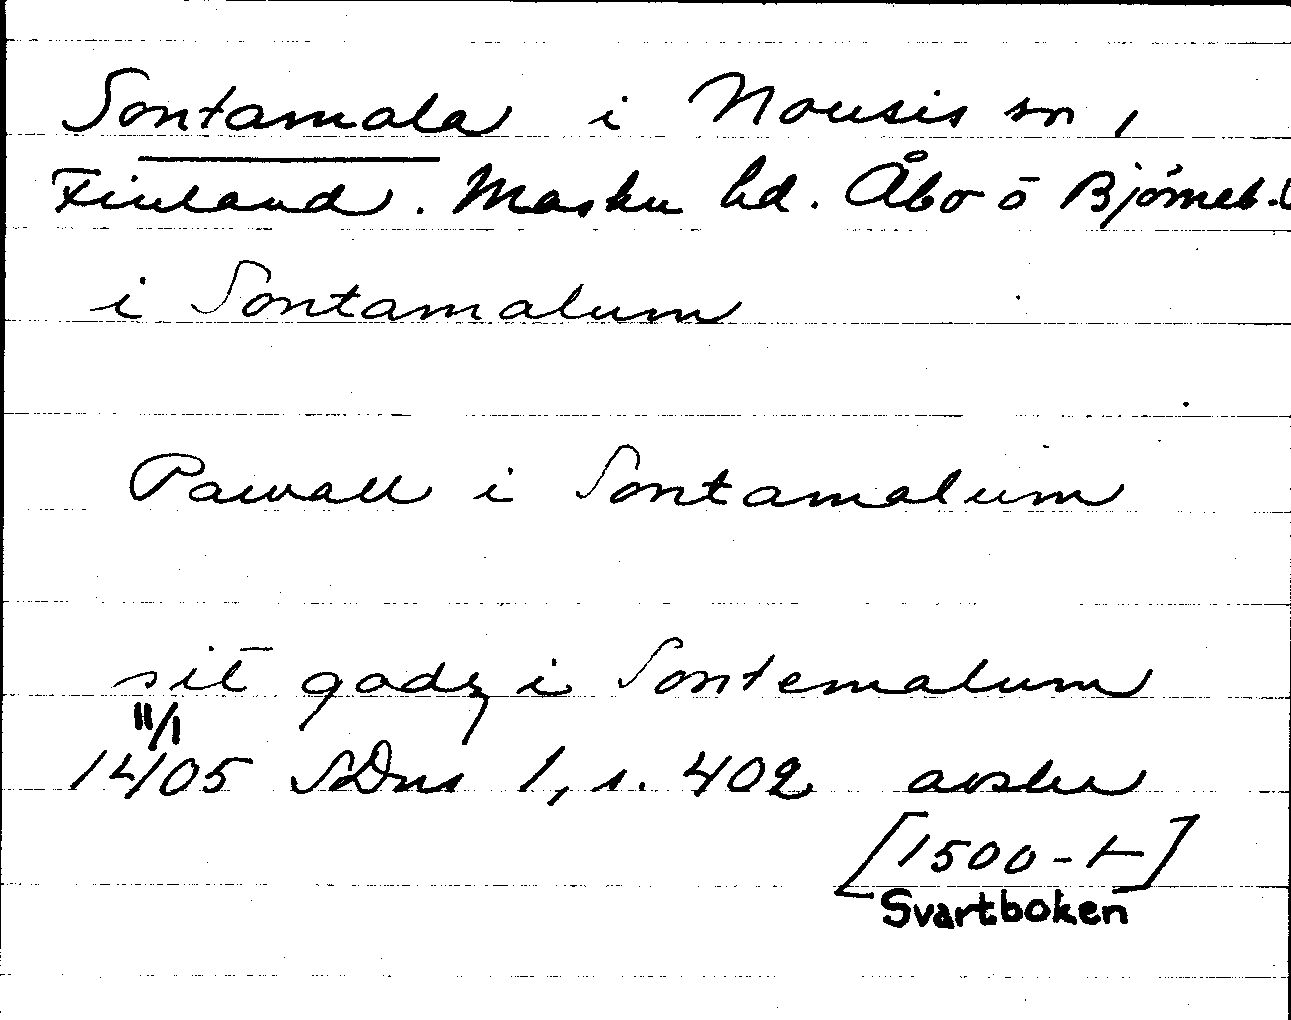 Sontamala i Nousis sn,
Finland. Masku hd. Åbo ō Björneb. l
i Sontamalum
Pawall i Sontamalum
sit godz i Sontemalum
11/1
1405 SDns 1, s. 402 avskr
[1500-t]
Svartboken